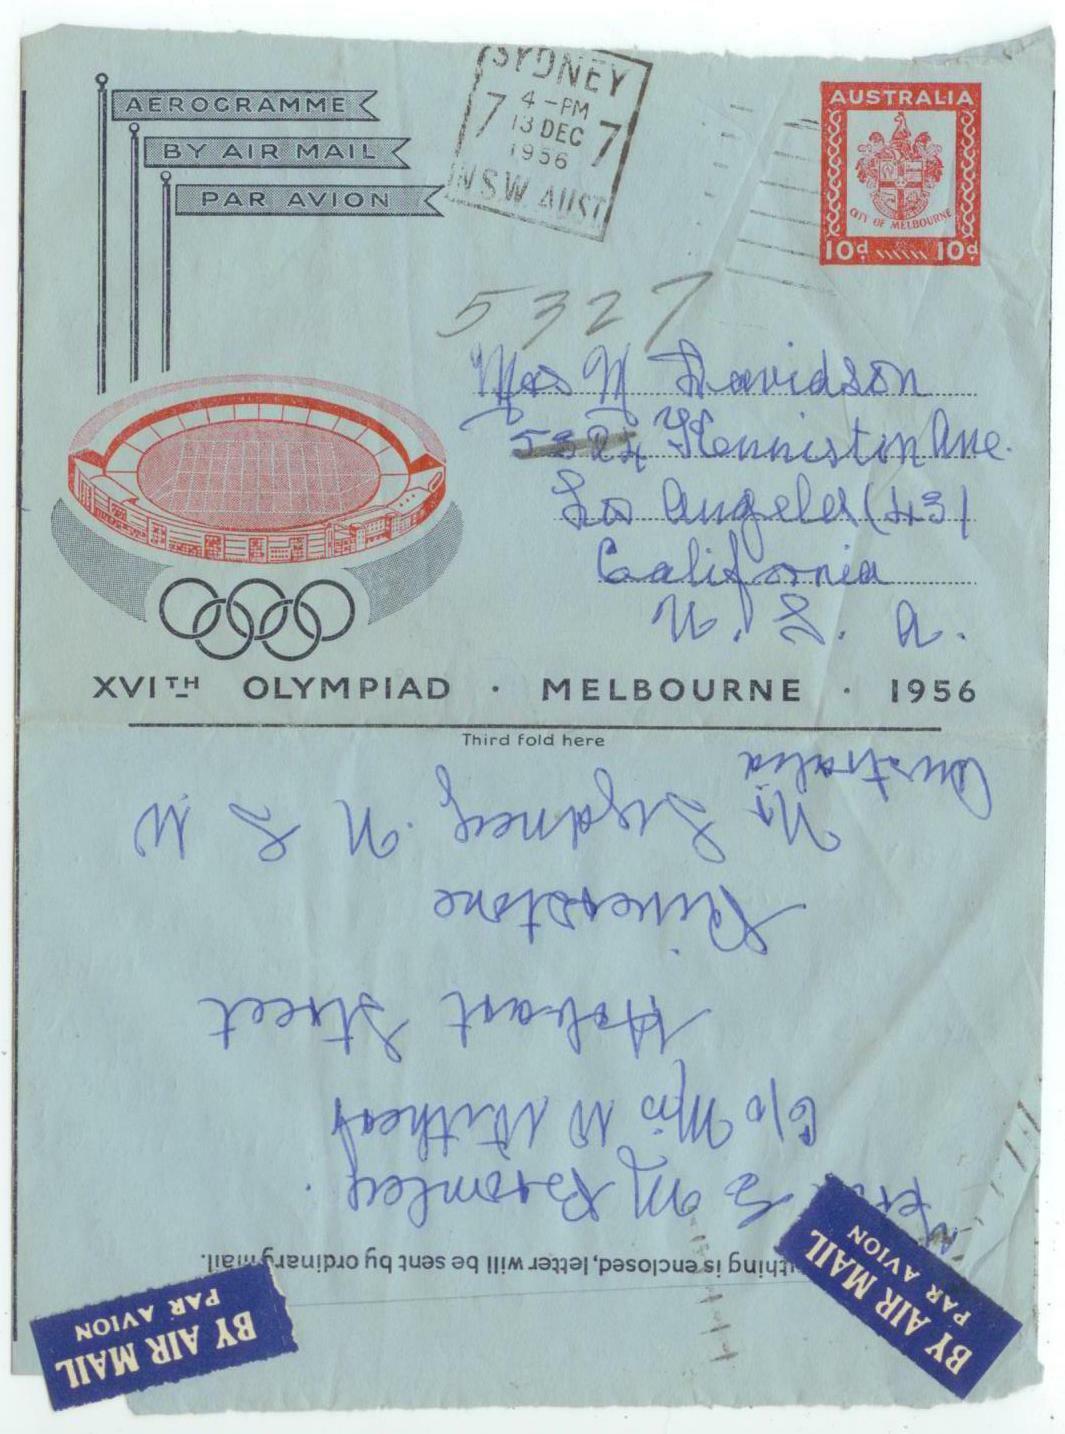 AEROGRAMME
BY AIR MAIL
PAR AVION
SYDNEY
4-PM
7 13 DEC 7
1956
N.S.W. AUST
AUSTRALIA
CITY OF MELBOURNE
10d 10d
5327
Mrs M Davidson
5324 Kenniston Ave.
Los Angeles (43)
California
U. S. A.
XVITH OLYMPIAD · MELBOURNE · 1956
Third fold here
thing is enclosed, letter will be sent by ordinary mail.
S M Bromley.
C/o Mrs W
Hobart Street
Riverstone
Nr Sydney. N S W
Australia
BY AIR MAIL
PAR AVION
BY AIR MAIL
PAR AVION